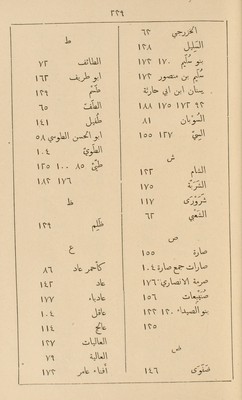 ٢٢٩
الخزرجي ٦٢
السليل ١٢٨
بنو سُلَيم ١٧٠ ١٧٣
سُلَيم بن منصور ١٧٣
سنان ابن ابي حارثة
٩٢ ١٧٢ ١٧٥ ١٨٨
السُّوبان ٨١
السِيّ ١٢٧ ١٥٥
ش
الشام ١٢٢
الشَرَبَّة ١٧٥
شَرَوْرَى ١١٧
الشعبي ٦٢
ص
صارة ١٥٥
صارات جمع صارة ١٠٤
صرمة الانصاري ١٧٦
صُنَيْبِعات ١٥٦
بنو الصيداء ١٢٠ ١٢٢
١٢٥
ض
ضَفْوَى ١٤٦
ط
الطائف ٧٢
ابو طريف ١٦٢
طَسْم ١٢٩
الطَفّ ٦٥
طُفَيل ١٤١
ابو الحسن الطوسي ٥٨
الطَوِيّ ١٠٤
طَيِّئ ٨٥ ١٠٠ ١٢٥
١٧٦ ١٨٢
ظ
ظَلِم ١٢٩
ع
كأحمر عاد ٨٦
عاد ١٤٢
عادياء ١٧٧
عاقل ١٠٤
عالج ١١٤
العاليات ١٢٧
العالية ٧٩
أفناء عامر ١٧٢